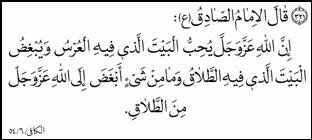 ٣٦ قَالَ الْاِمَامُ الصَّادِقُ (ع):
إِنَّ اللهَ عَزَّوَجَلَّ يُحِبُّ الْبَيْتَ الَّذي فِيهِ الْعُرْسُ وَيُبْغِضُ
الْبَيْتَ الَّذي فِيهِ الطَّلَاقُ وَمَا مِنْ شَىْءٍ أَبْغَضَ إِلَى اللهِ عَزَّوَجَلَّ
مِنَ الطَّلَاقِ.
الكافى/٦/٥٤